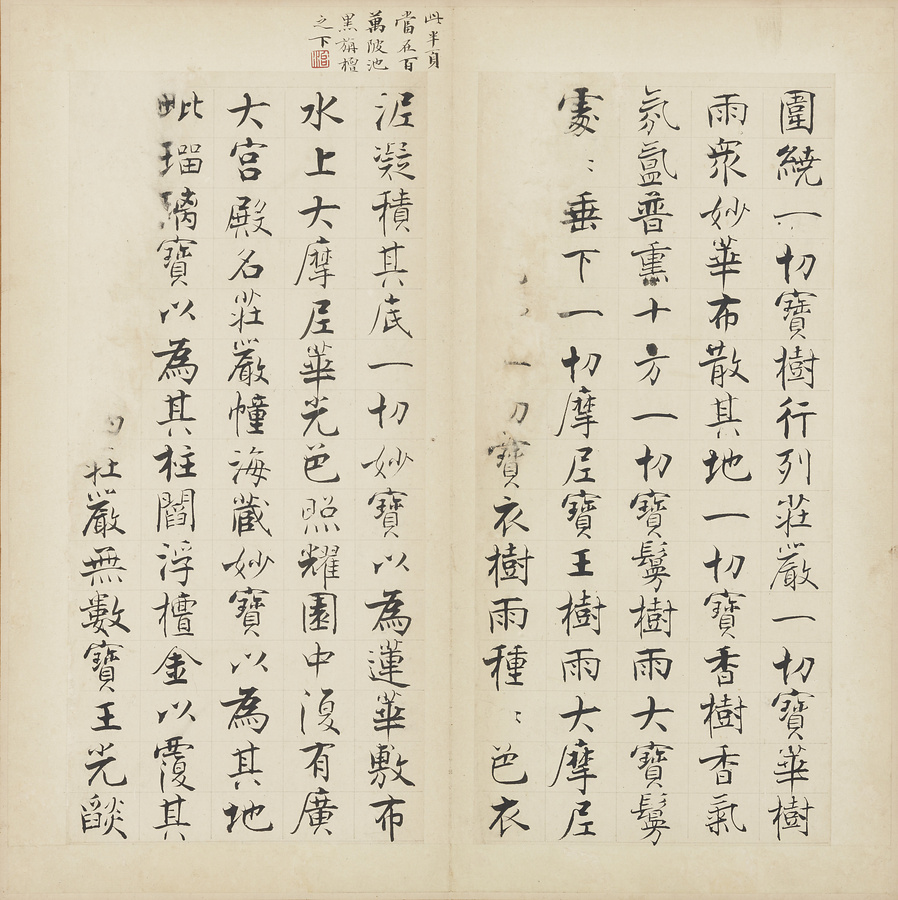 圍繞一切寶樹行列莊嚴一切寶華樹
雨眾妙華布散其地一切寶香樹香氣
氛氳普熏十方一切寶鬘樹雨大寶鬘
處〻垂下一切摩尼寶王樹雨大摩尼
一切寶衣樹雨種〻色衣
此半頁
當在百
萬陂池
黑旃檀
之下
泥凝積其底一切妙寶以為蓮華敷布
水上大摩尼華光色照耀園中復有廣
大宮殿名莊嚴幢海藏妙寶以為其地
毗瑠璃寶以為其柱閻浮檀金以覆其
莊嚴無數寶王光𦦨